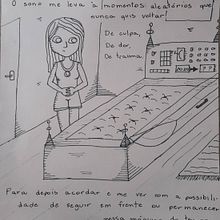 O sono me leva à momentos aleatórios que
nunca quis voltar
De culpa,
De dor,
De trauma.
Para depois acordar e me ver com a possibili-
dade de seguir em frente ou permanecer
nessa máquina de